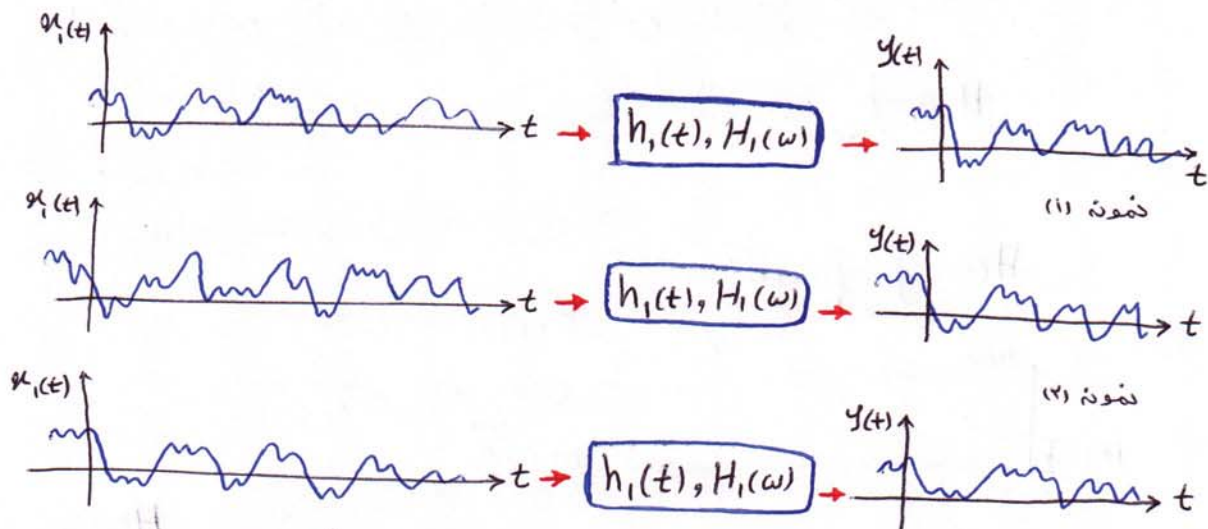 x₁(t)
t
h₁(t), H₁(ω)
y(t)
t
نمونه (۱)
x₁(t)
t
h₁(t), H₁(ω)
y(t)
t
نمونه (۲)
x₁(t)
t
h₁(t), H₁(ω)
y(t)
t